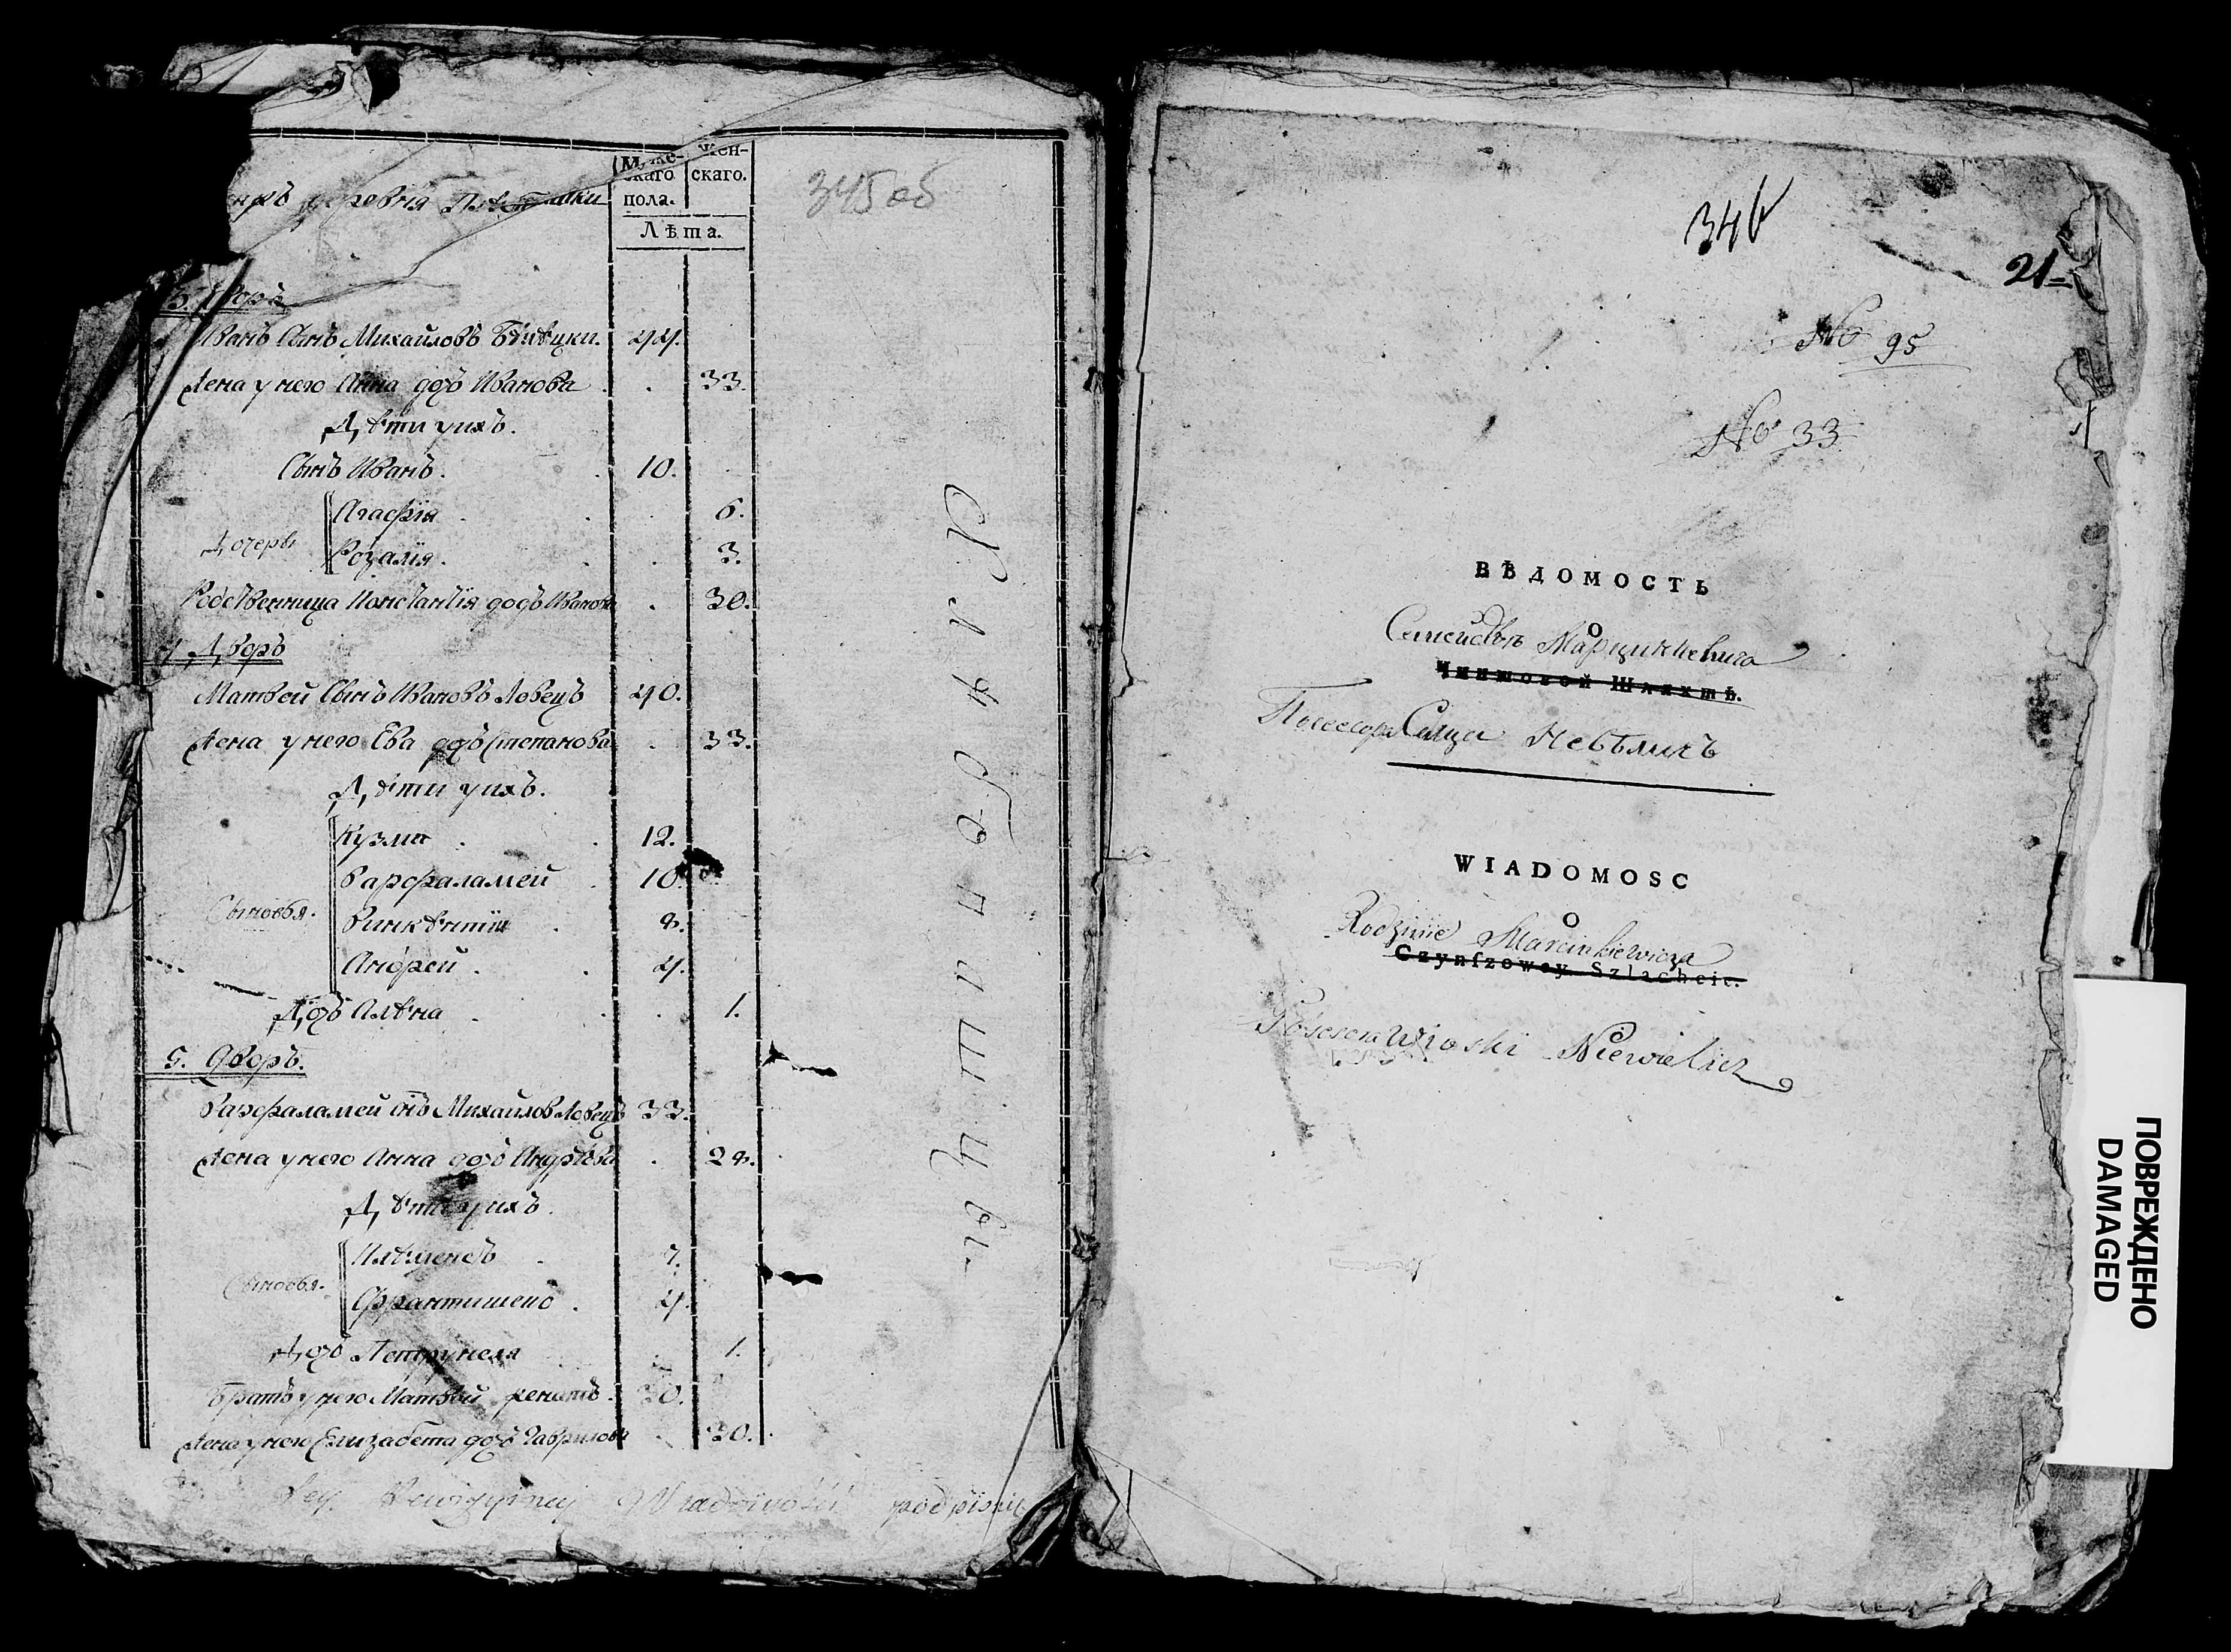 Муже-
скаго
пола.
Жен-
скаго.
Лѣта.
деревня
345 об
3. Дворъ
Иванъ Сынъ Михайловъ 44.
Жена у него Анна дочь Иванова . 33.
Дѣти ихъ.
Сынъ Иванъ. 10.
Дочери
Агафія . 6.
Розалія . 3.
Родственница Констанція дочь Иванова . 30.
4 Дворъ
Матвей Сынъ Ивановъ Ловецъ 40.
Жена у него Ева дочь Степанова . 33.
Дѣти ихъ.
Сыновья.
Кузма . 12.
Варфаламей . 10.
Винкѣнтій . 8.
Андрей . 4.
Дочь Алѣна . 1.
5. Дворъ.
Варфаламей Сынъ Михайловъ Ловецъ 33.
Жена у него Анна дочь Андрѣева . 28.
Дѣти ихъ.
Сыновья.
Клѣменсъ . 7.
Франтишекъ . 4.
Дочь Петрунеля . 1.
Братъ у него Матвѣй женатъ . 30.
Жена у него Елизабета дочь Гаврилова . 30.
Tey Rewizyiney Wiadomości podpisuię
346
21
No 95
No 33
ВѢДОМОСТЬ
О
Семействѣ Марцинкевича
Чиншовой Шляхтѣ.
Посессора Сельца Невѣличъ
WIADOMOSC
O
Rodzinie Marcinkiewicza
Czynszowey Szlachcie.
Possesora Wioski Niewielicz
ПОВРЕЖДЕНО
DAMAGED